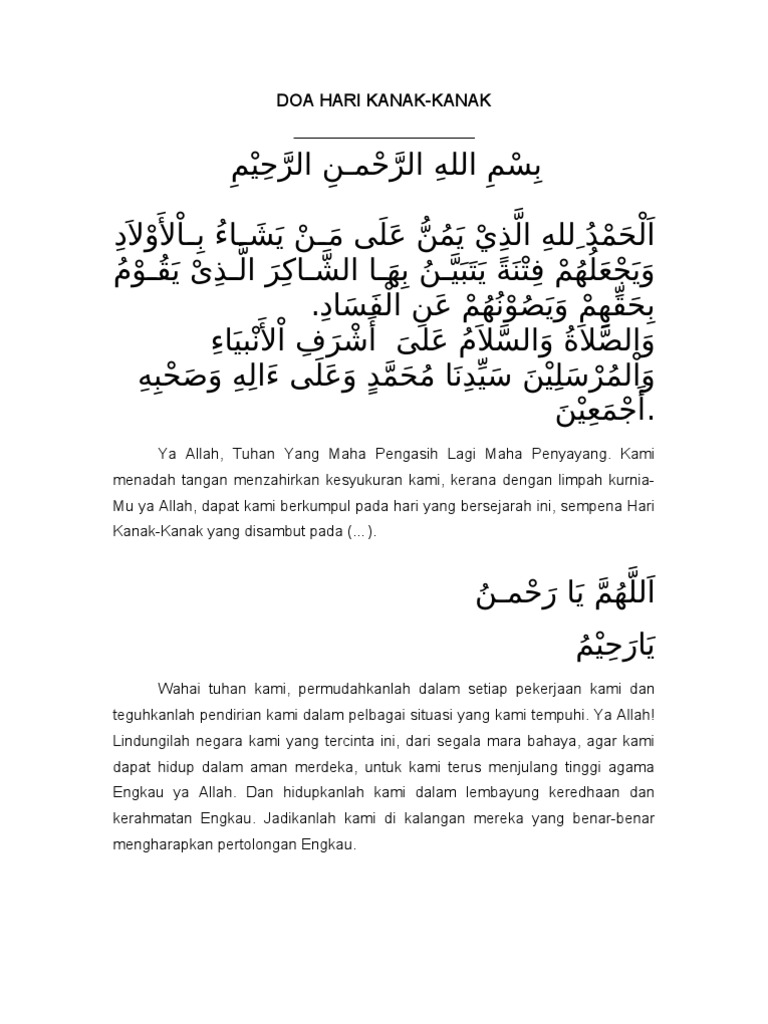 DOA HARI KANAK-KANAK
بِسْمِ اللهِ الرَّحْمـنِ الرَّحِيْمِ
اَلْحَمْدُ ِللهِ الَّذِيْ يَمُنُّ عَلَى مَـنْ يَشَـاءُ بِـاْلأَوْلاَدِ
وَيَجْعَلُهُمْ فِتْنَةً يَتَبَيَّـنُ بِهَـا الشَّـاكِرَ الَّـذِىْ يَقُـوْمُ
بِحَقِّهِمْ وَيَصُوْنُهُمْ عَنِ الْفَسَادِ.
وَالصَّلاَةُ وَالسَّلاَمُ عَلَىَ أَشْرَفِ اْلأَنْبِيَاءِ
وَاْلمُرْسَلِيْنَ سَيِّدِنَا مُحَمَّدٍ وَعَلَى ءَالِهِ وَصَحْبِهِ
أَجْمَعِيْنَ.
Ya Allah, Tuhan Yang Maha Pengasih Lagi Maha Penyayang. Kami
menadah tangan menzahirkan kesyukuran kami, kerana dengan limpah kurnia-
Mu ya Allah, dapat kami berkumpul pada hari yang bersejarah ini, sempena Hari
Kanak-Kanak yang disambut pada (...).
اَللَّهُمَّ يَا رَحْمـنُ
يَارَحِيْمُ
Wahai tuhan kami, permudahkanlah dalam setiap pekerjaan kami dan
teguhkanlah pendirian kami dalam pelbagai situasi yang kami tempuhi. Ya Allah!
Lindungilah negara kami yang tercinta ini, dari segala mara bahaya, agar kami
dapat hidup dalam aman merdeka, untuk kami terus menjulang tinggi agama
Engkau ya Allah. Dan hidupkanlah kami dalam lembayung keredhaan dan
kerahmatan Engkau. Jadikanlah kami di kalangan mereka yang benar-benar
mengharapkan pertolongan Engkau.